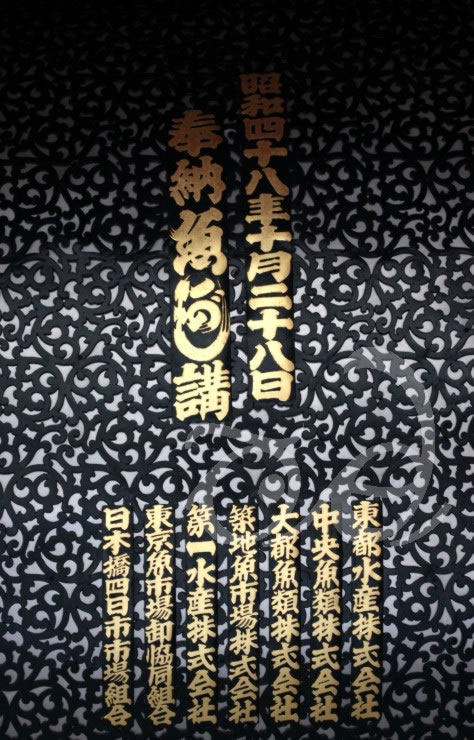 昭和四十八年十月二十八日
奉納魚がし講
東都水産株式会社
中央魚類株式会社
大都魚類株式会社
築地魚市場株式会社
第一水産株式会社
東京魚市場卸協同組合
日本橋四日市市場組合